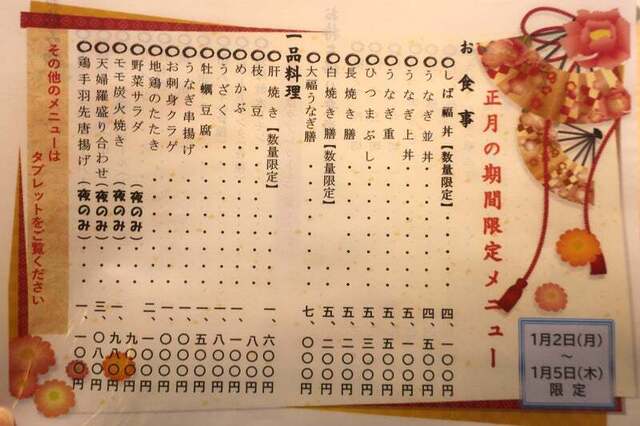 正月の期間限定メニュー
お食事
〇しば福丼【数量限定】・・四、一〇〇円
〇うなぎ並丼・・・・・・四、五〇〇円
〇うなぎ上丼・・・・・・五、一〇〇円
〇うなぎ重・・・・・・・
〇ひつまぶし・・・・・・五、三〇〇円
〇長焼き膳・・・・・・・
〇白焼き膳【数量限定】・・五、二〇〇円
〇大福うなぎ膳・・・・・七、〇〇〇円
一品料理
〇肝焼き【数量限定】・・・一、六〇〇円
〇枝豆・・・・・・・・・八〇〇円
〇めかぶ・・・・・・・・
〇うざく・・・・・・・・一、八〇〇円
〇牡蠣豆腐・・・・・・・
〇うなぎ串揚げ・・・・・
〇お刺身クラゲ・・・・・一、〇〇〇円
〇地鶏のたたき・・・・・二、一〇〇円
〇野菜サラダ(夜のみ)・・・九〇〇円
〇モモ炭火焼き(夜のみ)・・一、九八〇円
〇天婦羅盛り合わせ(夜のみ)・三、〇八〇円
〇鶏手羽先唐揚げ(夜のみ)・・一、一〇〇円
その他のメニューは
タブレットをご覧ください
1月2日(月)
～
1月5日(木)
限定